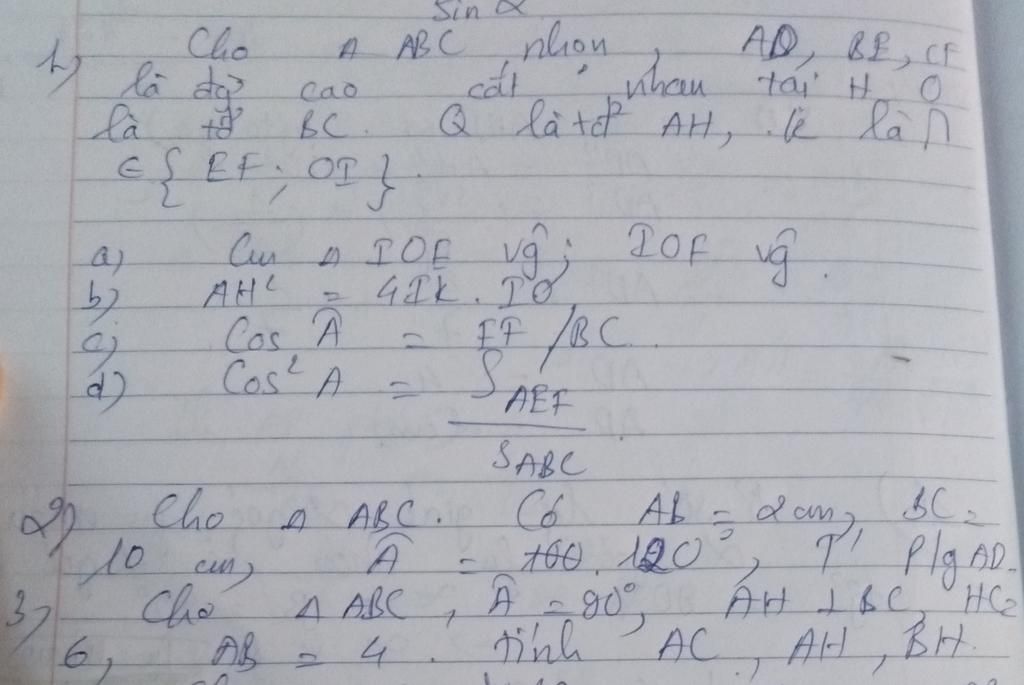 Sin α
1, Cho Δ ABC nhọn, AD, BE, CF
là đg cao cắt nhau tại H O
là tđ BC. Q là tđ AH, K là ∩
∈ { EF; OI }.
a) Cm Δ IOE vg; IOF vg.
b) AH² = 4IK. IO
c) Cos Â = EF/BC.
d) Cos² A = S AEF
S ABC
2) Cho Δ ABC. Có AB = 2cm, BC =
10 cm, Â = 120°, T' P/g AD.
3, Cho Δ ABC, Â = 90°, AH ⊥ BC, HC =
6, AB = 4. tính AC, AH, BH.